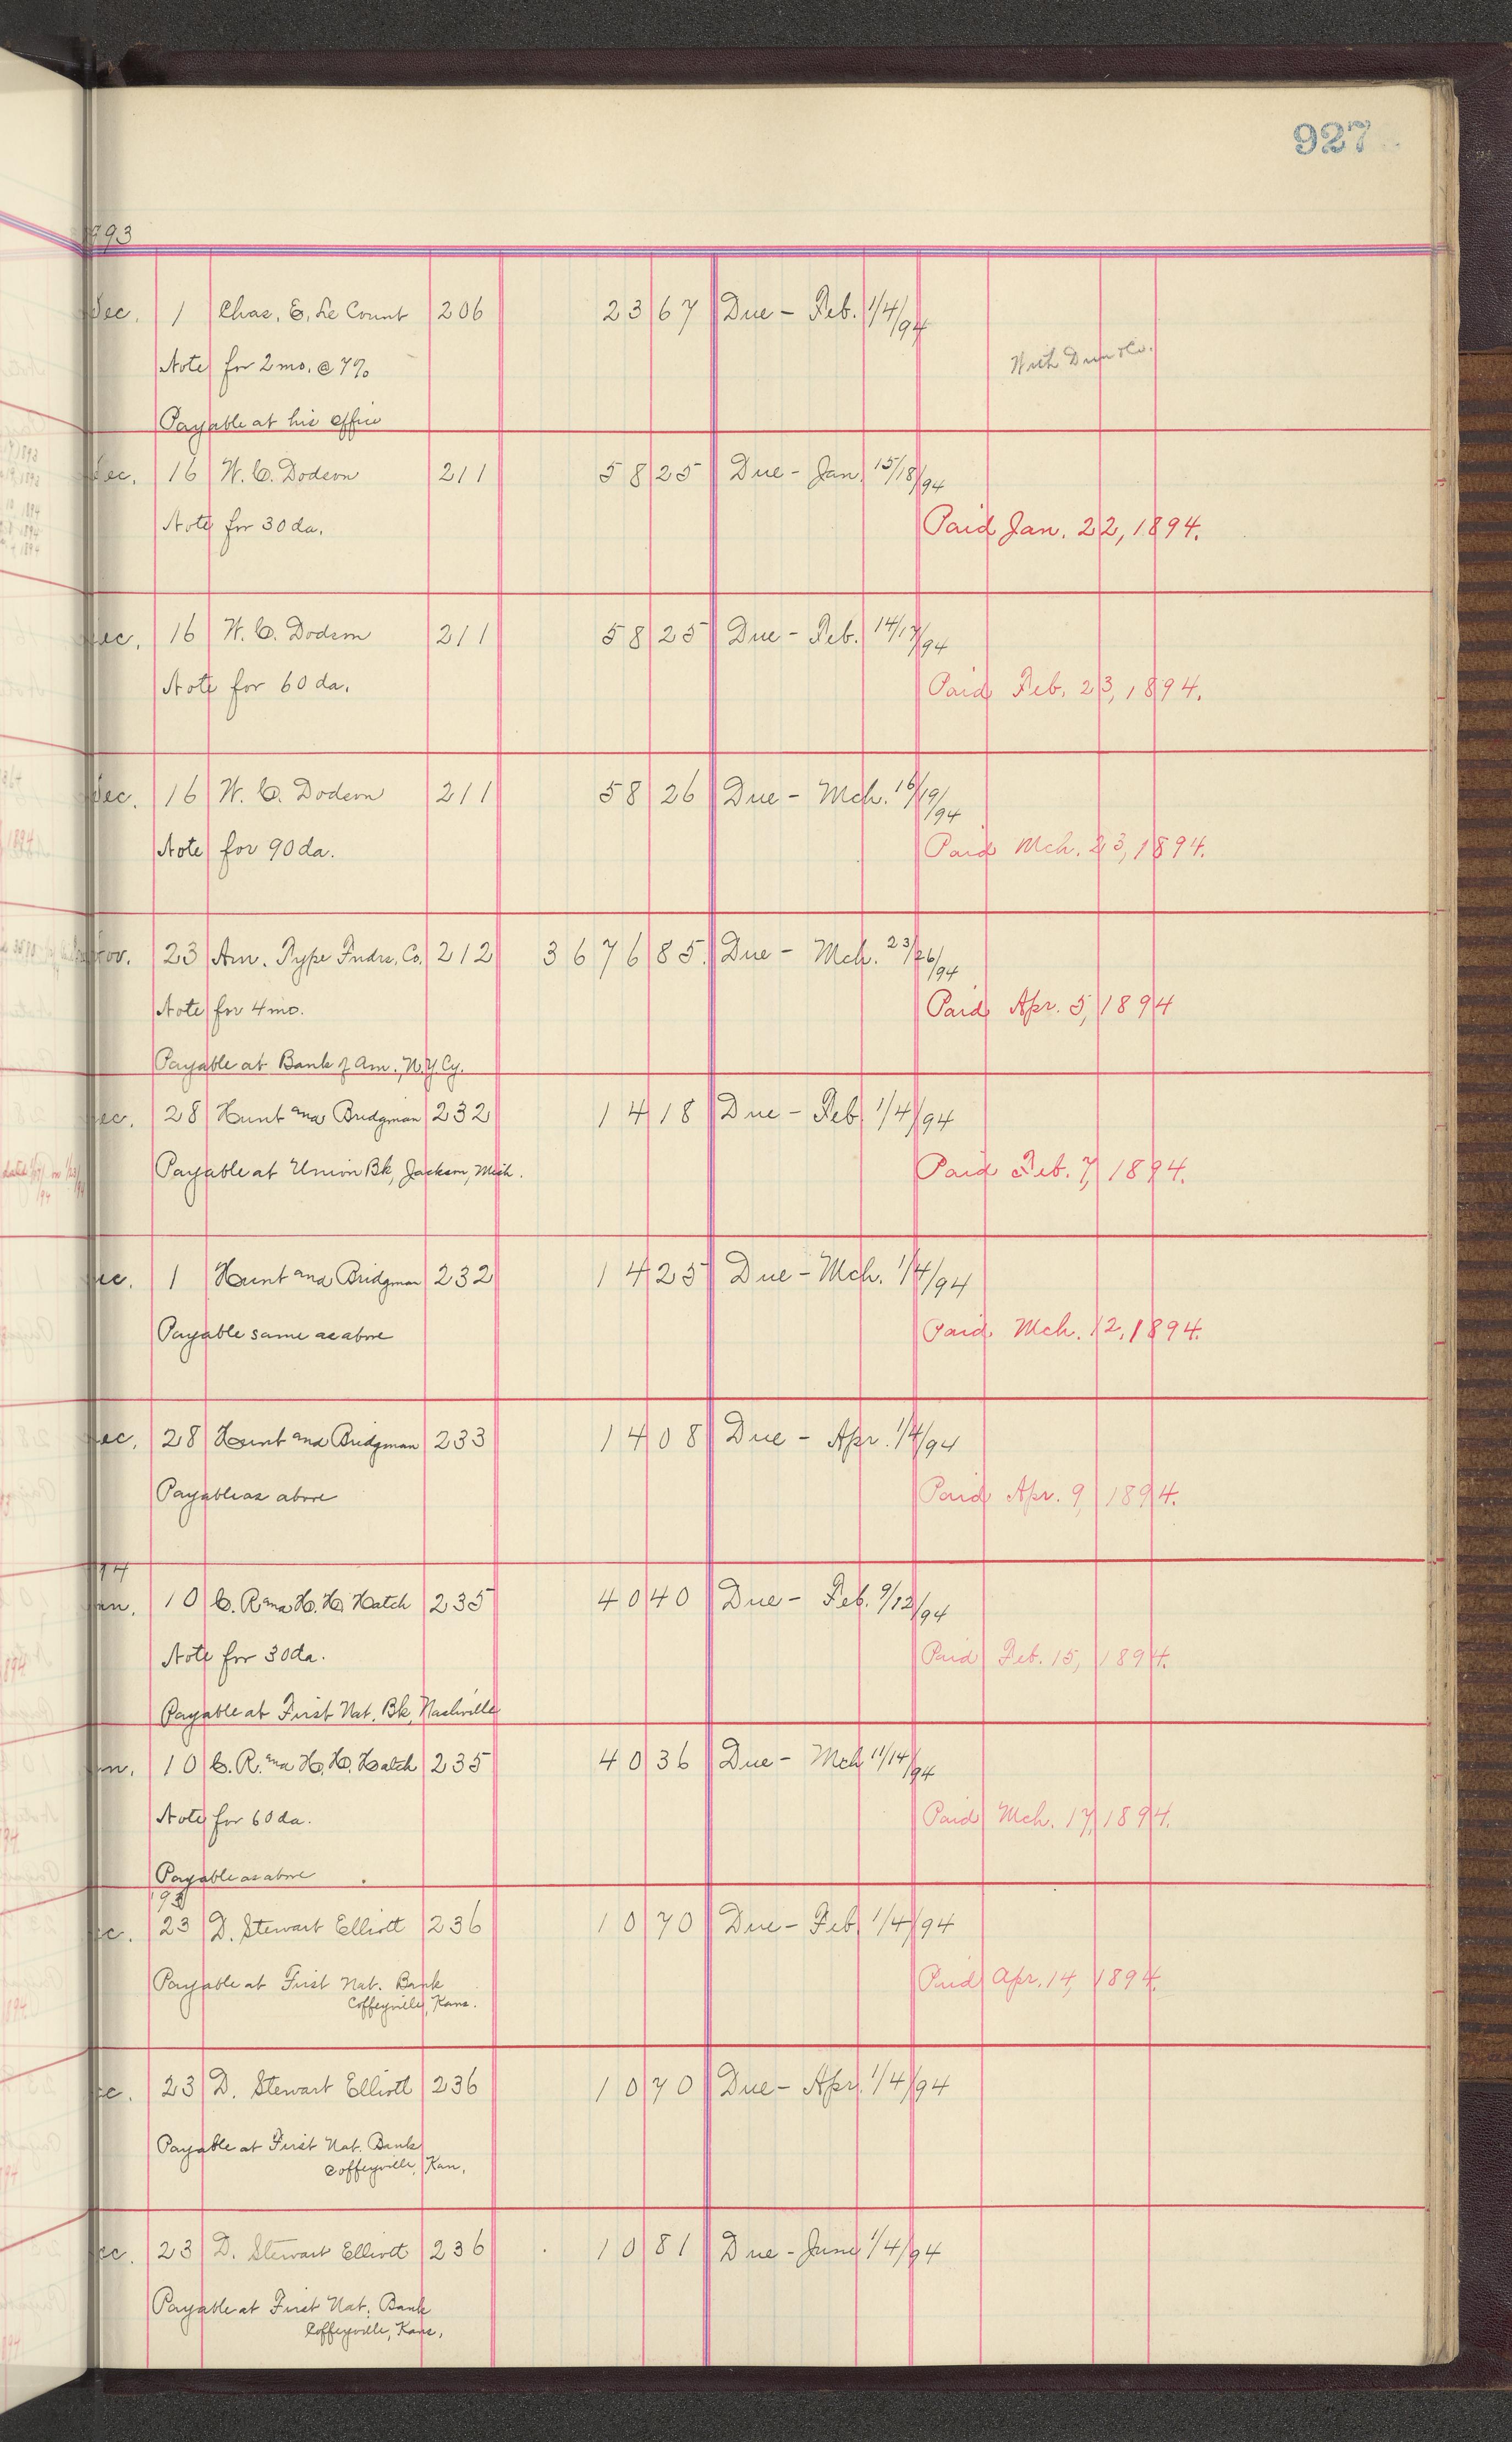 927
1893
Dec. 1 Chas. E. Le Count 206 23 67 Due - Feb. 1/4/94
Note for 2 mo. @ 7%
With Dun & Co.
Payable at his office
Dec. 16 W. C. Dodson 211 58 25 Due - Jan. 15/18/94
Note for 30 da.
Paid Jan. 22, 1894.
Dec. 16 W. C. Dodson 211 58 25 Due - Feb. 14/17/94
Note for 60 da.
Paid Feb. 23, 1894.
Dec. 16 W. C. Dodson 211 58 26 Due - Mch. 16/19/94
Note for 90 da.
Paid Mch. 23, 1894.
Nov. 23 Am. Type Fndrs. Co. 212 3676 85. Due - Mch. 23/26/94
Note for 4 mo.
Paid Apr. 5, 1894
Payable at Bank of Am., N.Y. Cy.
Dec. 28 Hunt and Bridgman 232 14 18 Due - Feb 1/4/94
Payable at Union Bk, Jackson, Mich.
Paid Feb. 7, 1894.
Dec. 1 Hunt and Bridgman 232 14 25 Due - Mch. 1/4/94
Payable same as above
Paid Mch. 12, 1894.
Dec. 28 Hunt and Bridgman 233 14 08 Due - Apr. 1/4/94
Payable as above
Paid Apr. 9, 1894.
1894
Jan. 10 C. R. and H. H. Hatch 235 40 40 Due - Feb. 9/12/94
Note for 30 da.
Paid Feb. 15, 1894.
Payable at First Nat. Bk, Nashville
Jan. 10 C. R. and H. H. Hatch 235 40 36 Due - Mch 11/14/94
Note for 60 da.
Paid Mch. 17, 1894.
Payable as above
193
Dec. 23 D. Stewart Elliott 236 10 70 Due - Feb 1/4/94
Payable at First Nat. Bank
Coffeyville, Kans.
Paid Apr. 14, 1894.
Dec. 23 D. Stewart Elliott 236 10 70 Due - Apr. 1/4/94
Payable at First Nat. Bank
Coffeyville, Kan.
Dec. 23 D. Stewart Elliott 236 10 81 Due - June 1/4/94
Payable at First Nat. Bank
Coffeyville, Kans.